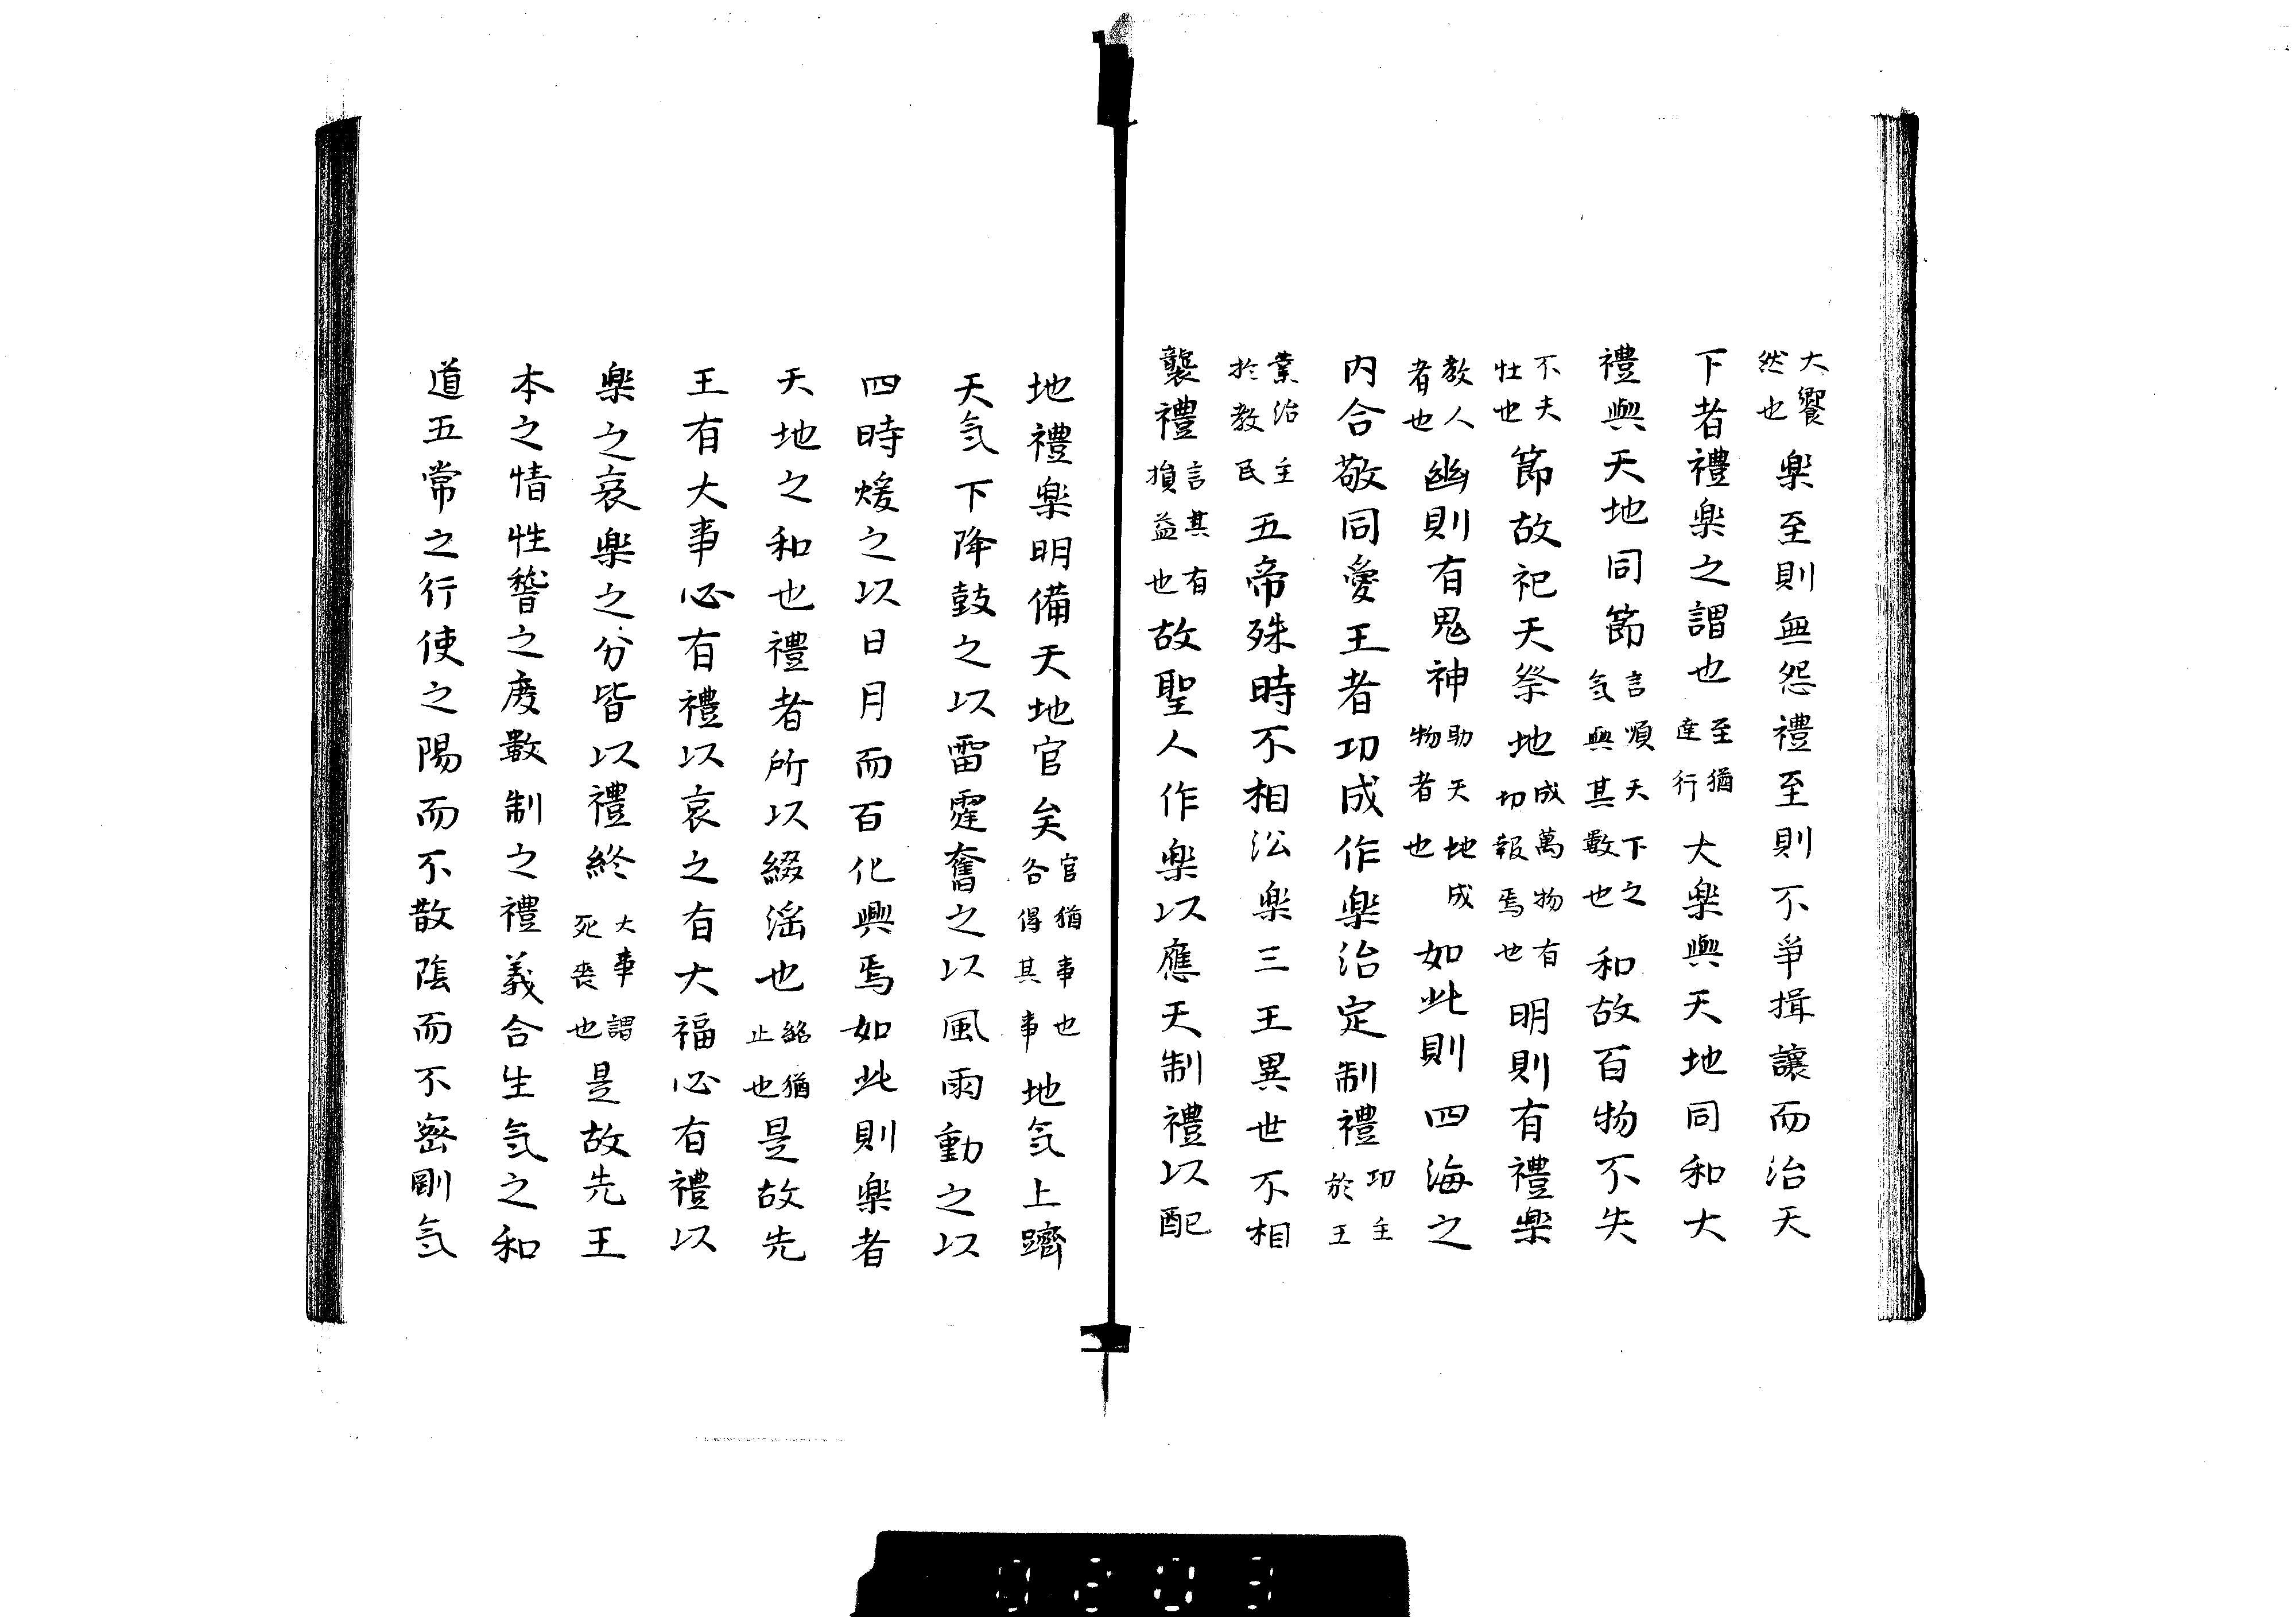 大饗然也楽至則無怨禮至則不爭揖讓而治天
下者禮楽之謂也至猶達行大楽與天地同和大
禮與天地同節言順天下之気與其數也和故百物不失
不夫性也節故祀天祭地成萬物有切報焉也明則有禮楽
教人者也幽則有鬼神助天地成物者也如此則四海之
内合敬同愛王者功成作楽治定制禮功主於王
業治主於教民五帝殊時不相沿楽三王異世不相
襲禮言其有損益也故聖人作楽以應天制禮以配
地禮楽明備天地官矣官猶事也各得其事地気上躋
天気下降鼓之以雷霆奮之以風雨動之以
四時煖之以日月而百化興焉如此則楽者
天地之和也禮者所以綴淫也綴猶止也是故先
王有大事必有禮以哀之有大福必有禮以
楽之哀楽之分皆以禮終大事謂死喪也是故先王
本之情性稽之度數制之禮義合生気之和
道五常之行使之陽而不散陰而不密剛気